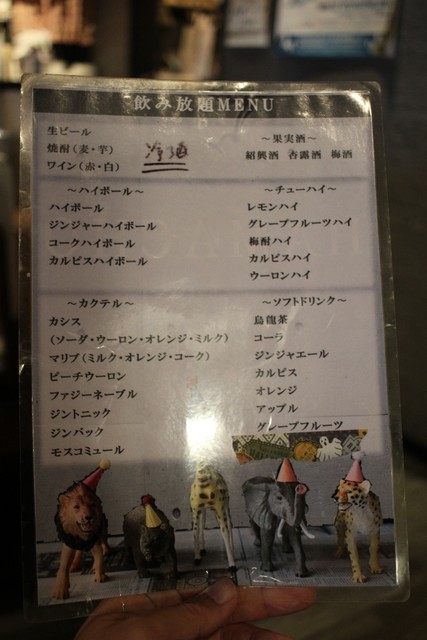 飲み放題MENU
生ビール
焼酎（麦・芋）
ワイン（赤・白）
冷酒
～果実酒～
紹興酒 杏露酒 梅酒
～ハイボール～
ハイボール
ジンジャーハイボール
コークハイボール
カルピスハイボール
～チューハイ～
レモンハイ
グレープフルーツハイ
梅酎ハイ
カルピスハイ
ウーロンハイ
～カクテル～
カシス
（ソーダ・ウーロン・オレンジ・ミルク）
マリブ（ミルク・オレンジ・コーク）
ピーチウーロン
ファジーネーブル
ジントニック
ジンバック
モスコミュール
～ソフトドリンク～
烏龍茶
コーラ
ジンジャエール
カルピス
オレンジ
アップル
グレープフルーツ